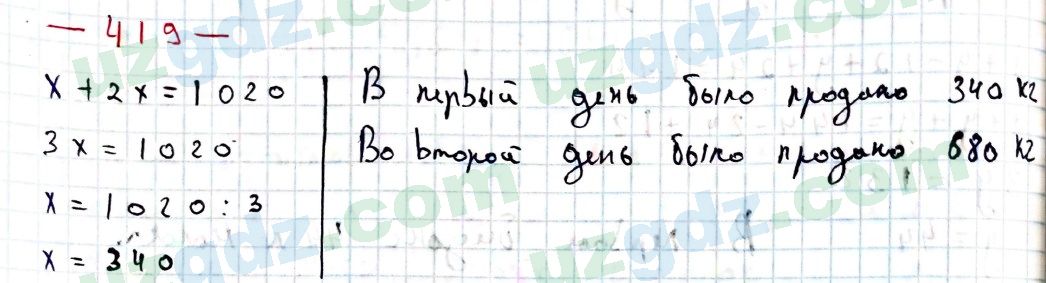 — 419 —
x + 2x = 1020
3x = 1020
x = 1020 : 3
x = 340
В первый день было продано 340 кг
Во второй день было продано 680 кг
uzgdz.com